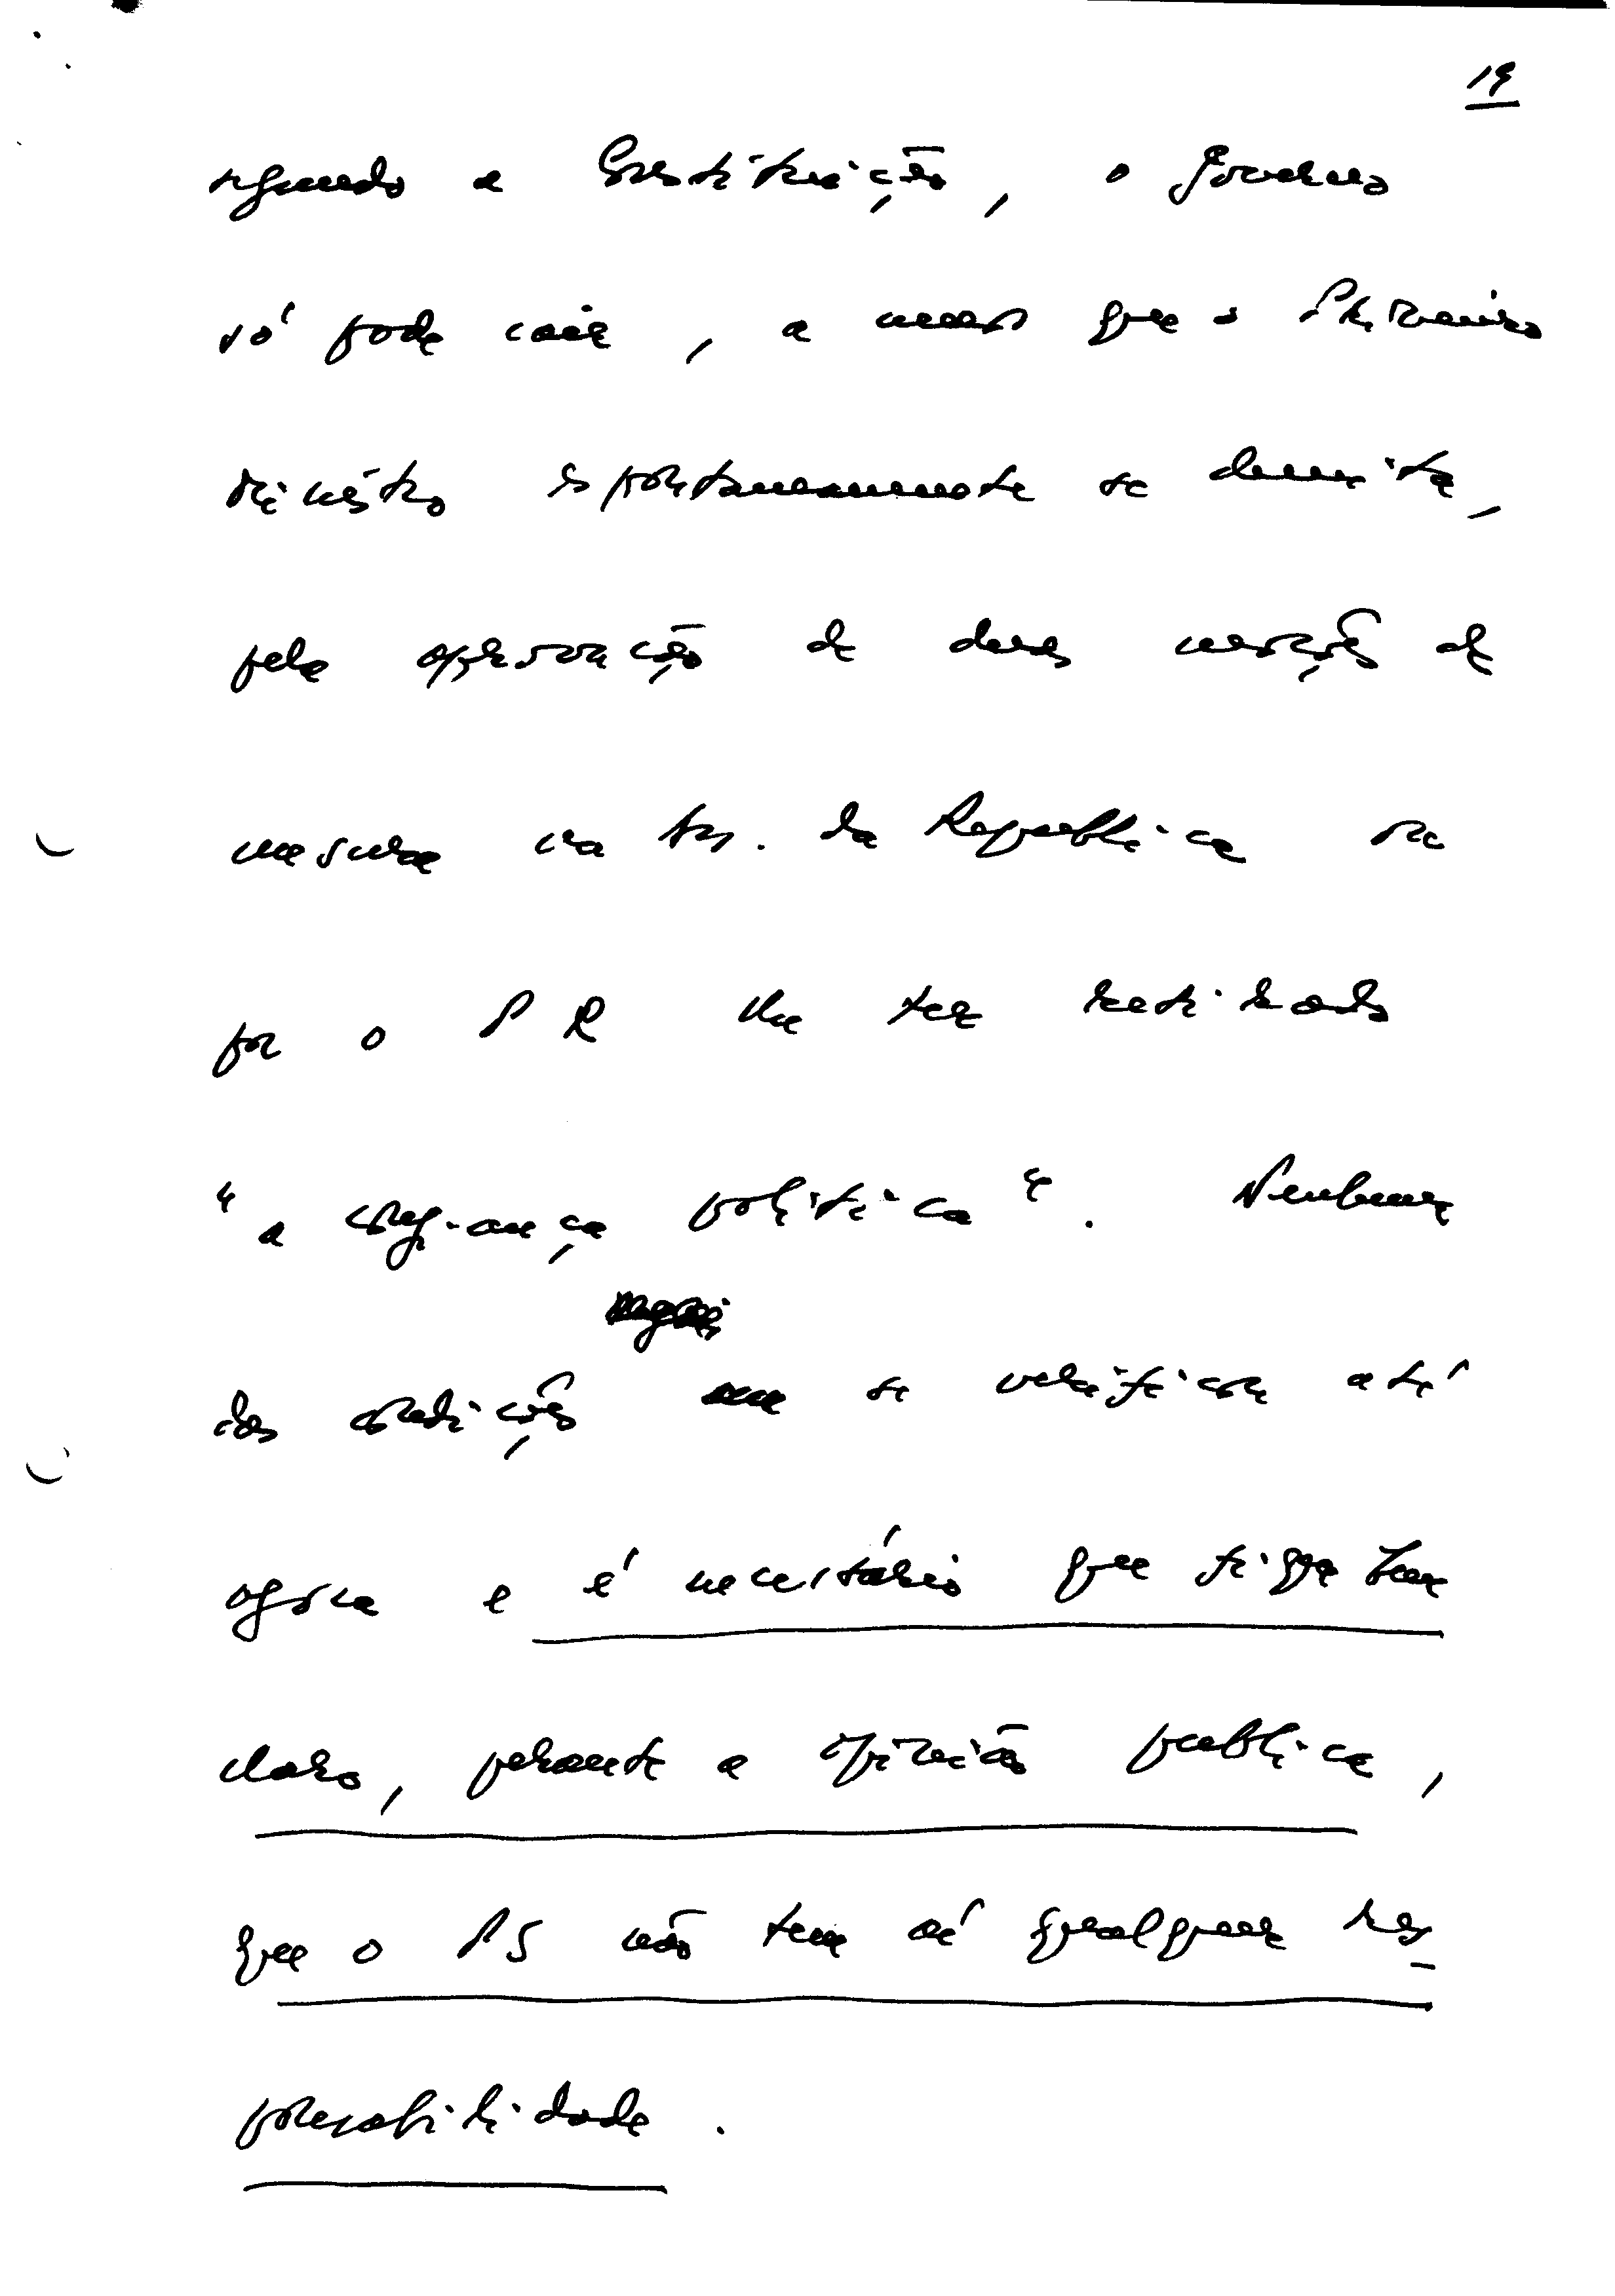 19
segundo a Constituição, o Governo
só pode cair, a menos que o Primeiro
Ministro espontaneamente se demita,
pela aprovação de duas moções de
censura na Ass. da Republica ou
por o PR lhe ter retirado
"a confiança politica". Nenhuma
das condições se verificou até
agora e é necessário que fique bem
claro, perante a opinião publica,
que o PS não tem aí qualquer res-
ponsabilidade.